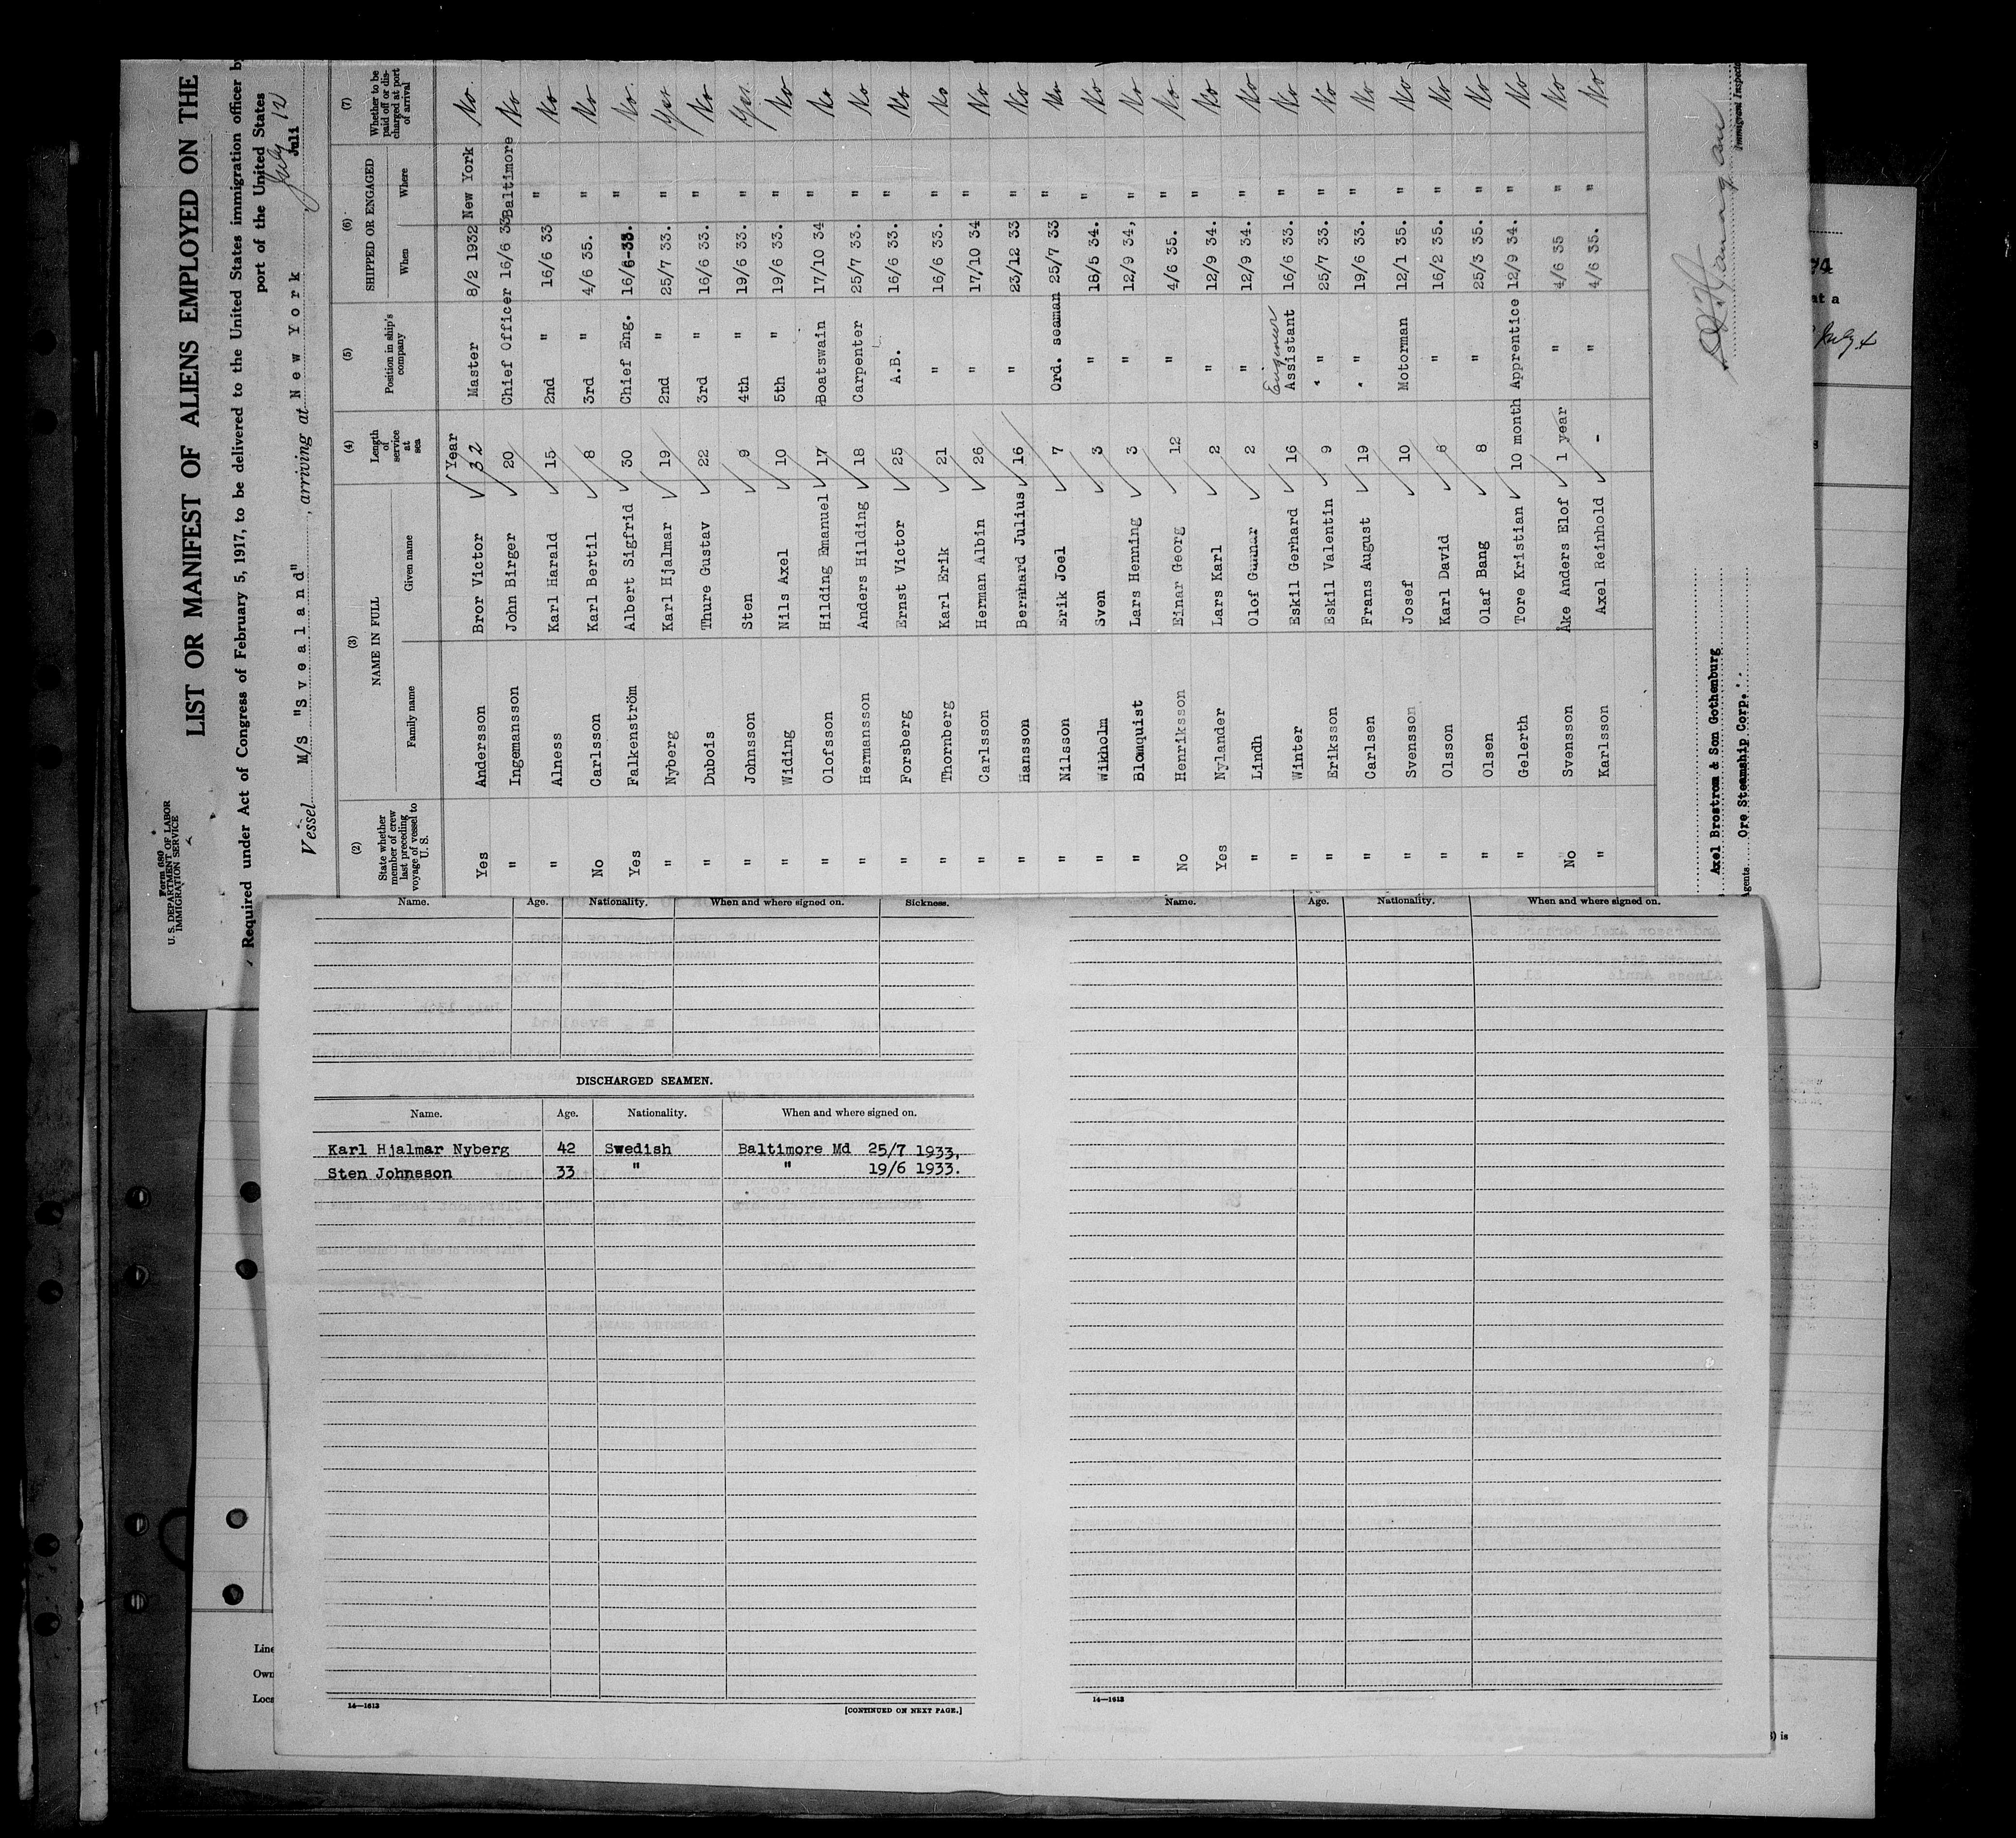 Form 680
U. S. DEPARTMENT OF LABOR
IMMIGRATION SERVICE
LIST OR MANIFEST OF ALIENS EMPLOYED ON THE
Required under Act of Congress of February 5, 1917, to be delivered to the United States immigration officer by
port of the United States
Vessel M/S "Svealand", arriving at New York, July 12 Juli
(2) (3) (4) (5) (6) (7)
State whether member of crew last preceding voyage of vessel to U. S. NAME IN FULL Length of service at sea Position in ship's company SHIPPED OR ENGAGED Whether to be paid off or discharged at port of arrival
Family name Given name When Where
Year
Yes Andersson Bror Victor 32 Master 8/2 1932 New York No.
" Ingemansson John Birger 20 Chief Officer 16/6 33 Baltimore No
" Alness Karl Harald 15 2nd " 16/6 33 " No
No Carlsson Karl Bertil 8 3rd " 4/6 35. " No
Yes Falkenström Albert Sigfrid 30 Chief Eng. 16/6-33. " No.
" Nyberg Karl Hjalmar 19 2nd " 25/7 33. " Yes
" Dubois Thure Gustav 22 3rd " 16/6 33. " No
" Johnsson Sten 9 4th " 19/6 33. " Yes.
" Widing Nils Axel 10 5th " 19/6 33. " No
" Olofsson Hilding Emanuel 17 Boatswain 17/10 34 " No
" Hermansson Anders Hilding 18 Carpenter 25/7 33. " No
" Forsberg Ernst Victor 25 A.B. 16/6 33. " No
" Thornberg Karl Erik 21 " 16/6 33. " No
" Carlsson Herman Albin 26 " 17/10 34 " No
" Hansson Bernhard Julius 16 " 23/12 33 " No
" Nilsson Erik Joel 7 Ord. seaman 25/7 33 " No
" Wikholm Sven 3 " 18/5 34. " No
" Blomquist Lars Henning 3 " 12/9 34, " No
No Henriksson Einar Georg 12 " 4/6 35. " No.
Yes Nylander Lars Karl 2 " 12/9 34. " No
" Lindh Olof Gunnar 2 " 12/9 34. " No
" Winter Eskil Gerhard 16 Engineer Assistant 16/6 33. " No
" Eriksson Eskil Valentin 9 " " 25/7 33. " No
" Carlsen Frans August 19 " " 19/6 33. " No
" Svensson Josef 10 Motorman 12/1 35. " No
" Olsson Karl David 6 " 16/2 35. " No
" Olsen Olaf Bang 8 " 25/3 35. " No
" Gelerth Tore Kristian 10 month Apprentice 12/9 34. " No
No Svensson Åke Anders Elof 1 year " 4/6 35 " No
" Karlsson Axel Reinhold - " 4/6 35. " No
Axel Brostrom & Son Gothenburg
Agents Ore Steamship Corp.
Immigrant Inspector
74
at a
July
Name. Age. Nationality. When and where signed on. Sickness.
DISCHARGED SEAMEN.
Name. Age. Nationality. When and where signed on.
Karl Hjalmar Nyberg 42 Swedish Baltimore Md 25/7 1933,
Sten Johnsson 33 " " 19/6 1933.
14—1613
[CONTINUED ON NEXT PAGE.]
Name. Age. Nationality. When and where signed on.
14—1613
Line
Own
Loca
) is